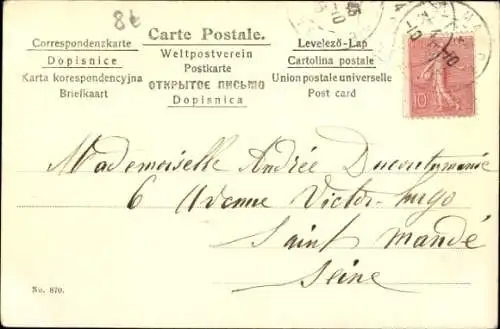 8t
Carte Postale.
Correspondenzkarte
Dopisnice
Karta korespondencyjna
Briefkaart
Weltpostverein
Postkarte
ОТКРЫТОЕ ПИСЬМО
Dopisnica
Levelező-Lap
Cartolina postale
Union postale universelle
Post card
10
Mademoiselle Andrée
6 Avenue Victor-Hugo
Saint Mandé
Seine
No. 870.